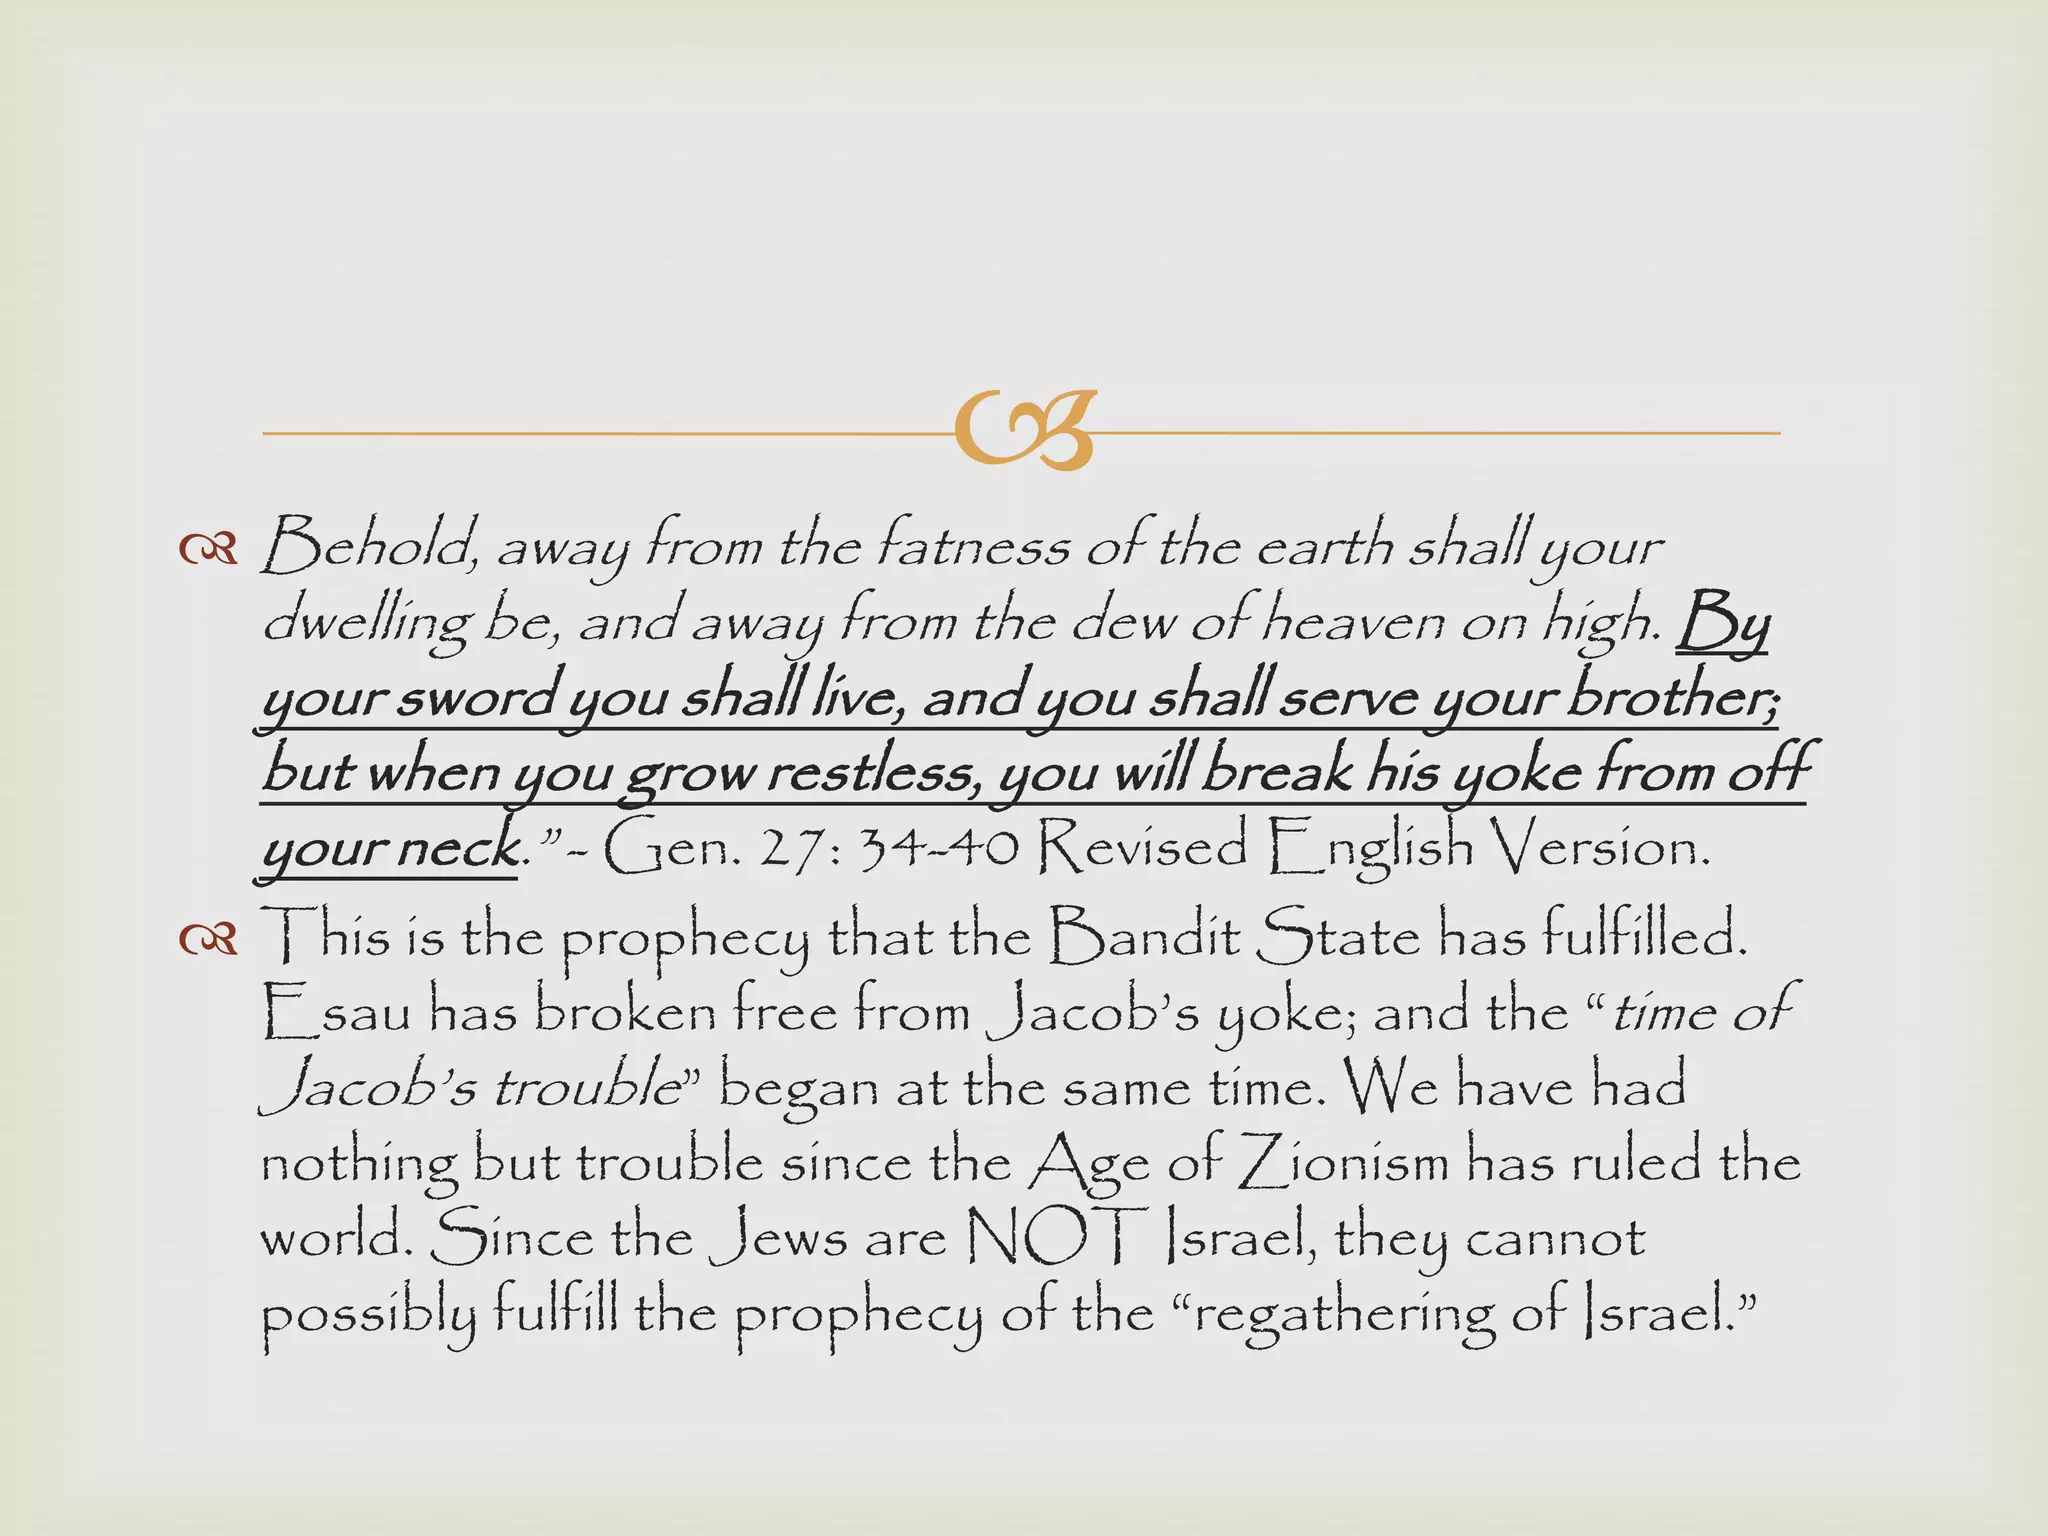 Behold, away from the fatness of the earth shall your
dwelling be, and away from the dew of heaven on high. By
your sword you shall live, and you shall serve your brother;
but when you grow restless, you will break his yoke from off
your neck.”- Gen. 27: 34-40 Revised English Version.
This is the prophecy that the Bandit State has fulfilled.
Esau has broken free from Jacob’s yoke; and the “time of
Jacob’s trouble” began at the same time. We have had
nothing but trouble since the Age of Zionism has ruled the
world. Since the Jews are NOT Israel, they cannot
possibly fulfill the prophecy of the “regathering of Israel.”